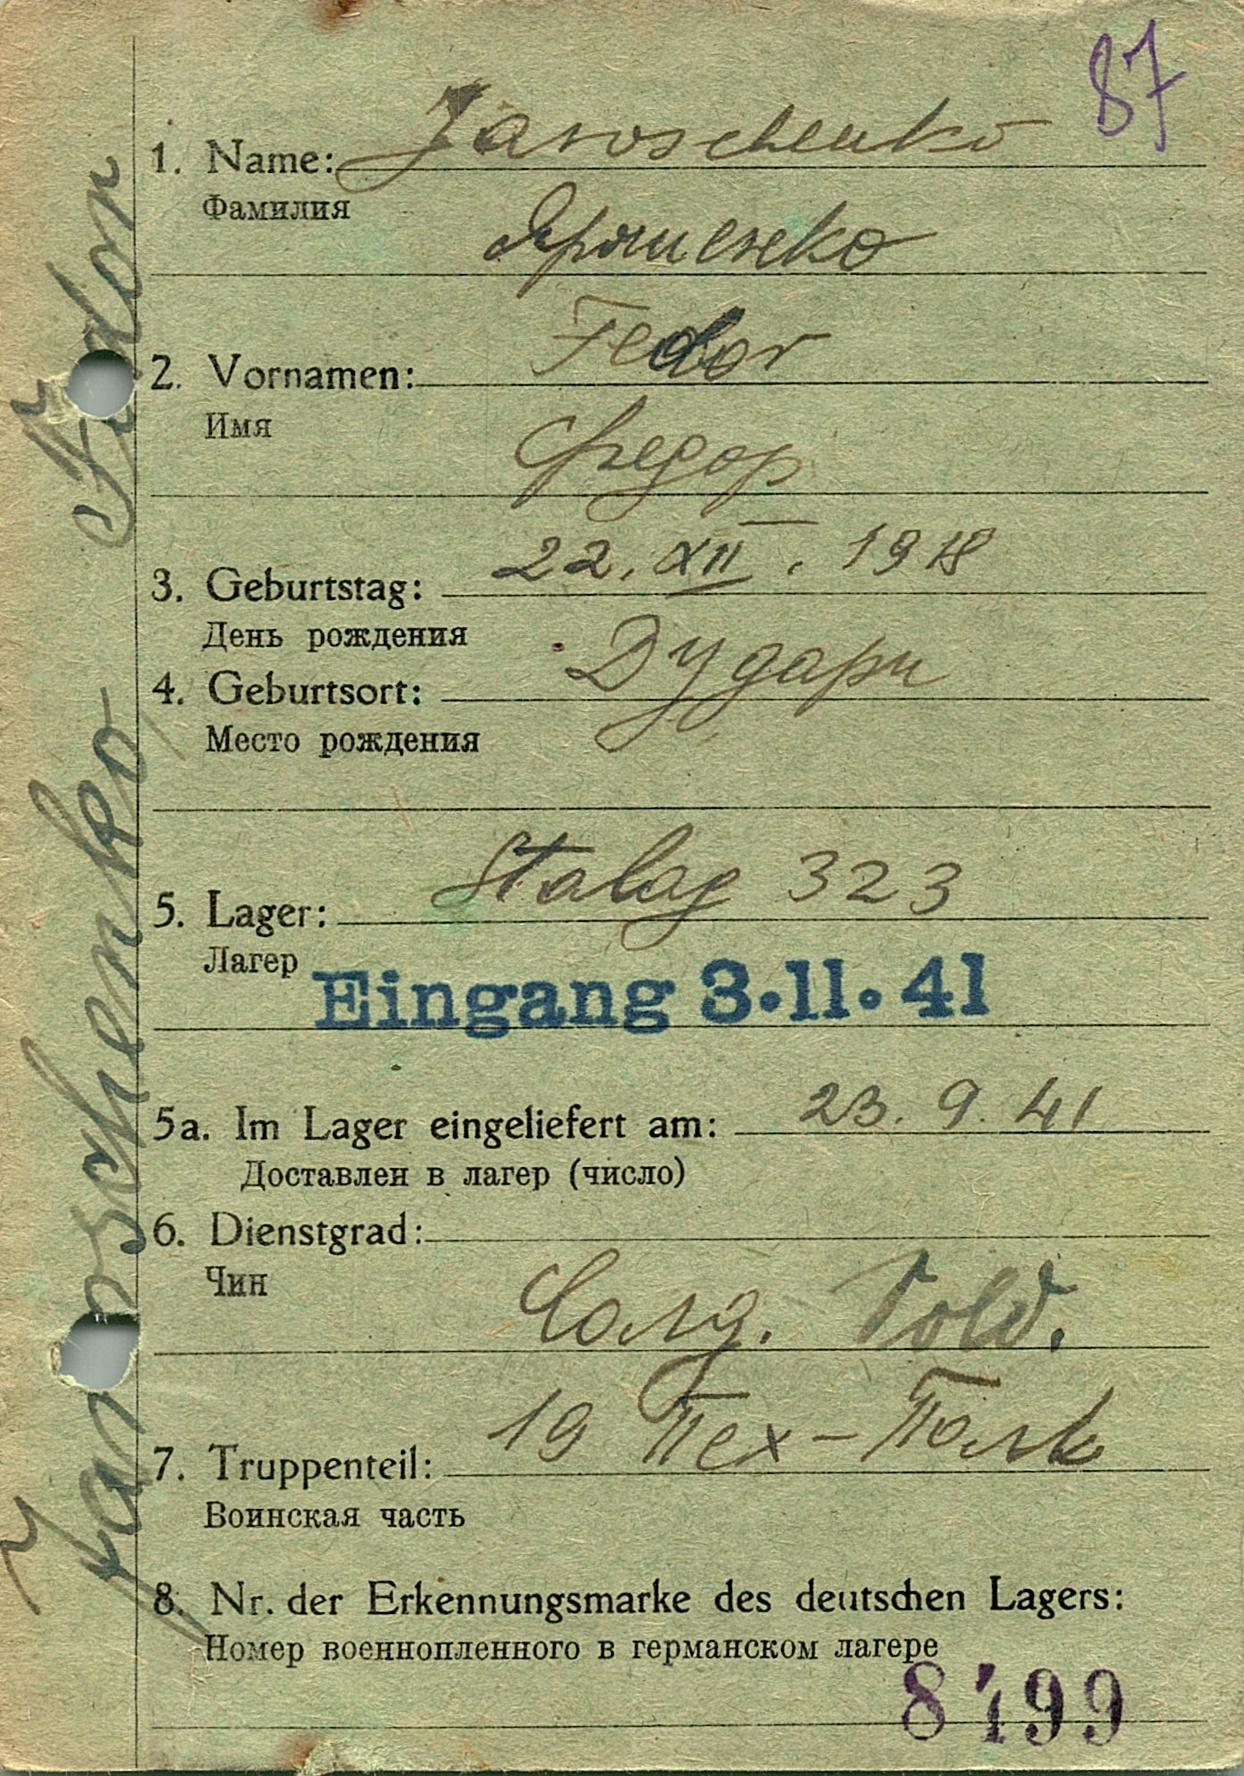 87
1. Name: Jaroschenko
Фамилия
Ярошенко
2. Vornamen: Fedor
Имя
Федор
3. Geburtstag: 22. XII. 1918
День рождения
4. Geburtsort: Дудари
Место рождения
5. Lager: Stalag 323
Лагерь
Eingang 3.11.41
5a. Im Lager eingeliefert am: 23. 9. 41
Доставлен в лагер (число)
6. Dienstgrad:
Чин
Солд. Sold.
7. Truppenteil: 19 Пех-Полк
Воинская часть
8. Nr. der Erkennungsmarke des deutschen Lagers:
Номер военнопленного в германском лагере
8499
Jaroschenko, Fedor